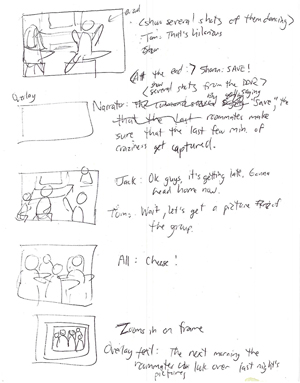 (show several shots of them dancing)
Tom: That's hilarious
<At the end:> Sharon: SAVE!
<several shots from the DDR>
Overlay
Narrator: "Save", the
that the last roommates make
sure that the last few min. of
craziness get captured.
Jack: Ok guys, it's getting late. Gonna
head home now.
Tom: Wait, let's get a picture of
the group.
All: Cheese!
Zooms in on frame
Overlay text: The next morning the
roommates look over last night's
pictures